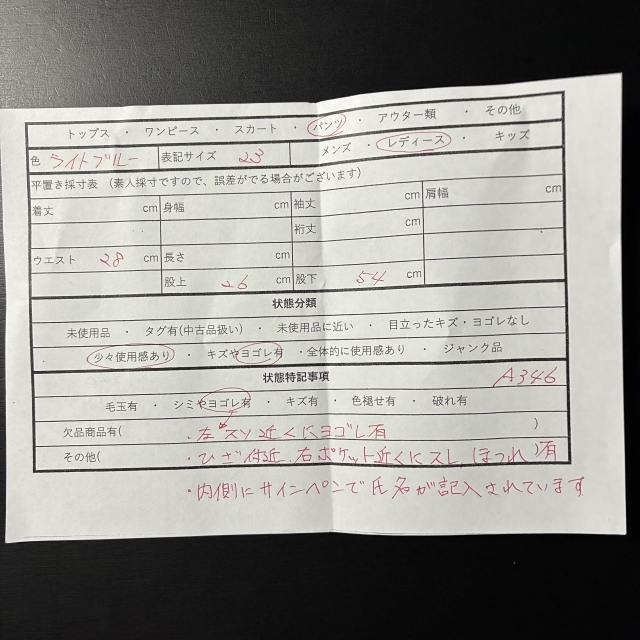 トップス ・ ワンピース ・ スカート ・ パンツ ・ アウター類 ・ その他
色 ライトブルー 表記サイズ 23 メンズ ・ レディース ・ キッズ
平置き採寸表 (素人採寸ですので、誤差がでる場合がございます)
着丈 cm 身幅 cm 袖丈 cm 肩幅 cm
裄丈 cm
ウエスト 28 cm 長さ cm
股上 26 cm 股下 54 cm
状態分類
未使用品 ・ タグ有(中古品扱い) ・ 未使用品に近い ・ 目立ったキズ・ヨゴレなし
少々使用感あり ・ キズやヨゴレ有 ・全体的に使用感あり ・ ジャンク品
状態特記事項 A346
毛玉有 ・ シミやヨゴレ有 ・ キズ有 ・ 色褪せ有 ・ 破れ有
欠品商品有( ・左スソ近くにヨゴレ有 )
その他( ・ひざ付近、右ポケット近くにスレ、ほつれ )有
・内側にサインペンで氏名が記入されています